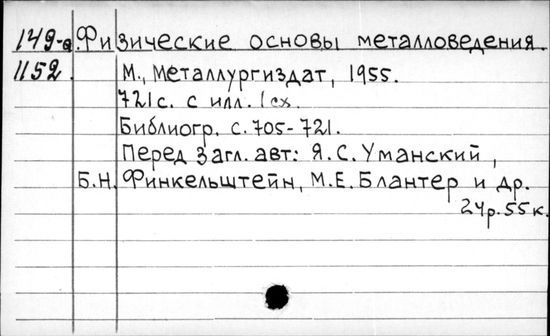 149-а Физические основы металловедения.
1152. М., Металлургиздат, 1955.
721 с. с илл. 1 сх.
Библиогр. с. 705-721.
Перед загл. авт: Я.С. Уманский,
Б.Н. Финкельштейн, М.Е. Блантер и др.
24р. 55 к.